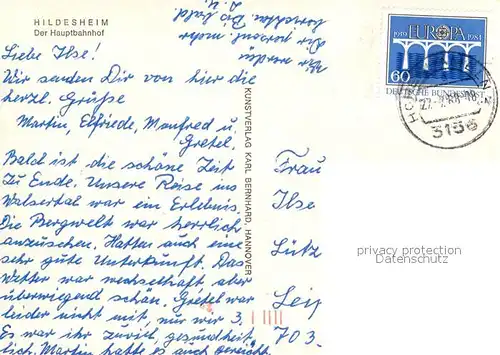 HILDESHEIM
Der Hauptbahnhof
Liebe Ilse!
Wir senden Dir von hier die
herzl. Grüße
Martin, Elfriede, Manfred u.
Gretel.
Bald ist die schöne Zeit
zu Ende. Unsere Reise ins
Walsertal war ein Erlebnis.
Die Bergwelt war herrlich
anzuschauen. Hatten auch eine
sehr gute Unterkunft. Das
Wetter war wechselhaft aber
überwiegend schön. Gretel war
leider nicht mit, nur wir 3.
Es war ihr zuviel, gesundheit-
lich. Martin hatte es auch
Wir werden
Dir mehr
Bis bald
KUNSTVERLAG KARL BERNHARD, HANNOVER
EUROPA
1959 1984
60
DEUTSCHE BUNDESPOST
3156
Frau
Ilse
Lütz
Leip
703
privacy protection
Datenschutz